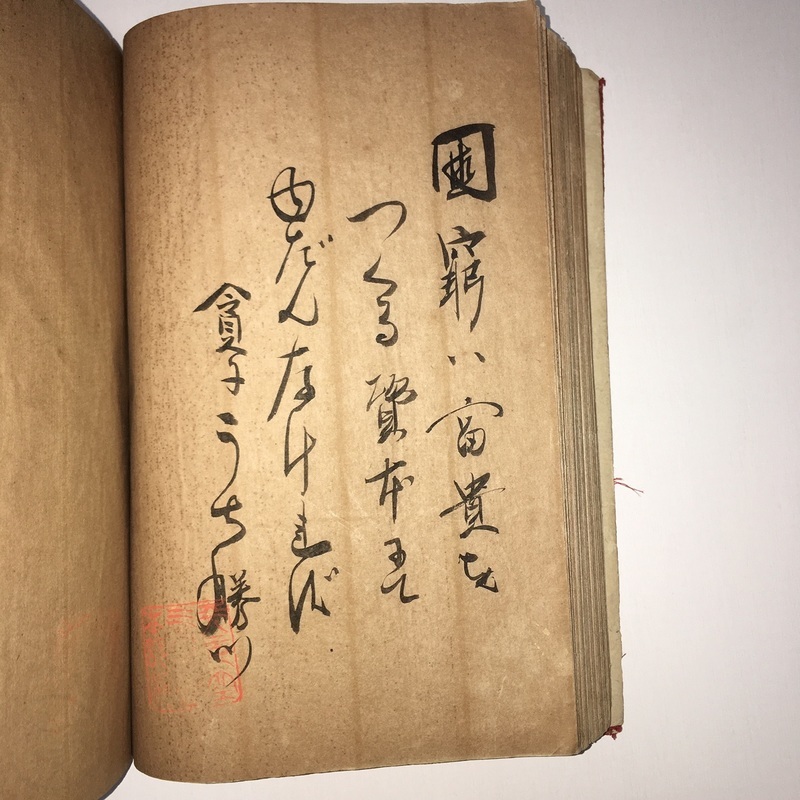 困窮ハ富貴を
つくる資本にて
ゆだんなければ
貧にうち勝川